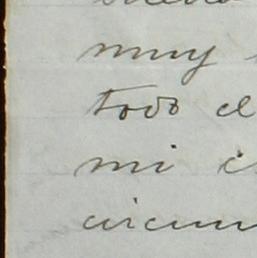 muy
todo el
mi
circun